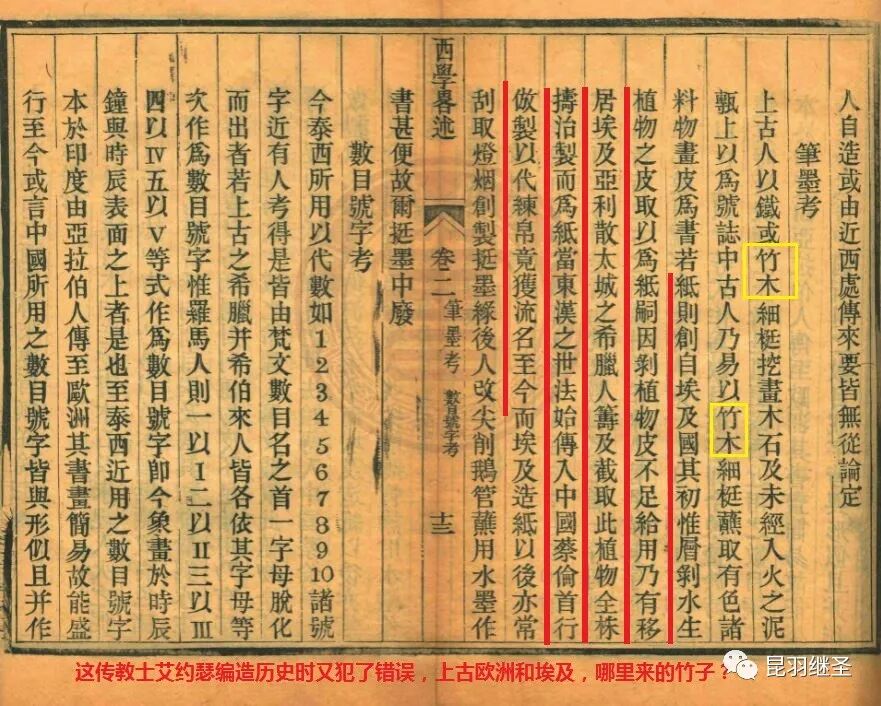 人自造或由近西處傳來要皆無從論定
筆墨考
上古人以鐵或竹木細梃挖畫木石及未經入火之泥
甎上以爲號誌中古人乃易以竹木細梃蘸取有色諸
料物畫皮爲書若紙則創自埃及國其初惟層剝水生
植物之皮取以爲紙嗣因剝植物皮不足給用乃有移
居埃及亞利散太城之希臘人籌及截取此植物全株
擣治製而爲紙當東漢之世法始傳入中國蔡倫首行
倣製以代練帛竟獲流名至今而埃及造紙以後亦常
刮取燈烟創製挺墨緣後人改尖削鵝管蘸用水墨作
西學畧述 卷二 筆墨考 數目號字考 十三
書甚便故爾挺墨中廢
數目號字考
今泰西所用以代數如12345678910諸號
字近有人考得是皆由梵文數目名之首一字母脫化
而出者若上古之希臘并希伯來人皆各依其字母等
次作爲數目號字惟羅馬人則一以I二以II三以III
四以IV五以V等式作爲數目號字卽今象畫於時辰
鐘與時辰表面之上者是也至泰西近用之數目號字
本於印度由亞拉伯人傳至歐洲其書畫簡易故能盛
行至今或言中國所用之數目號字皆與形似且并作
这传教士艾约瑟编造历史时又犯了错误，上古欧洲和埃及，哪里来的竹子？
昆羽继圣